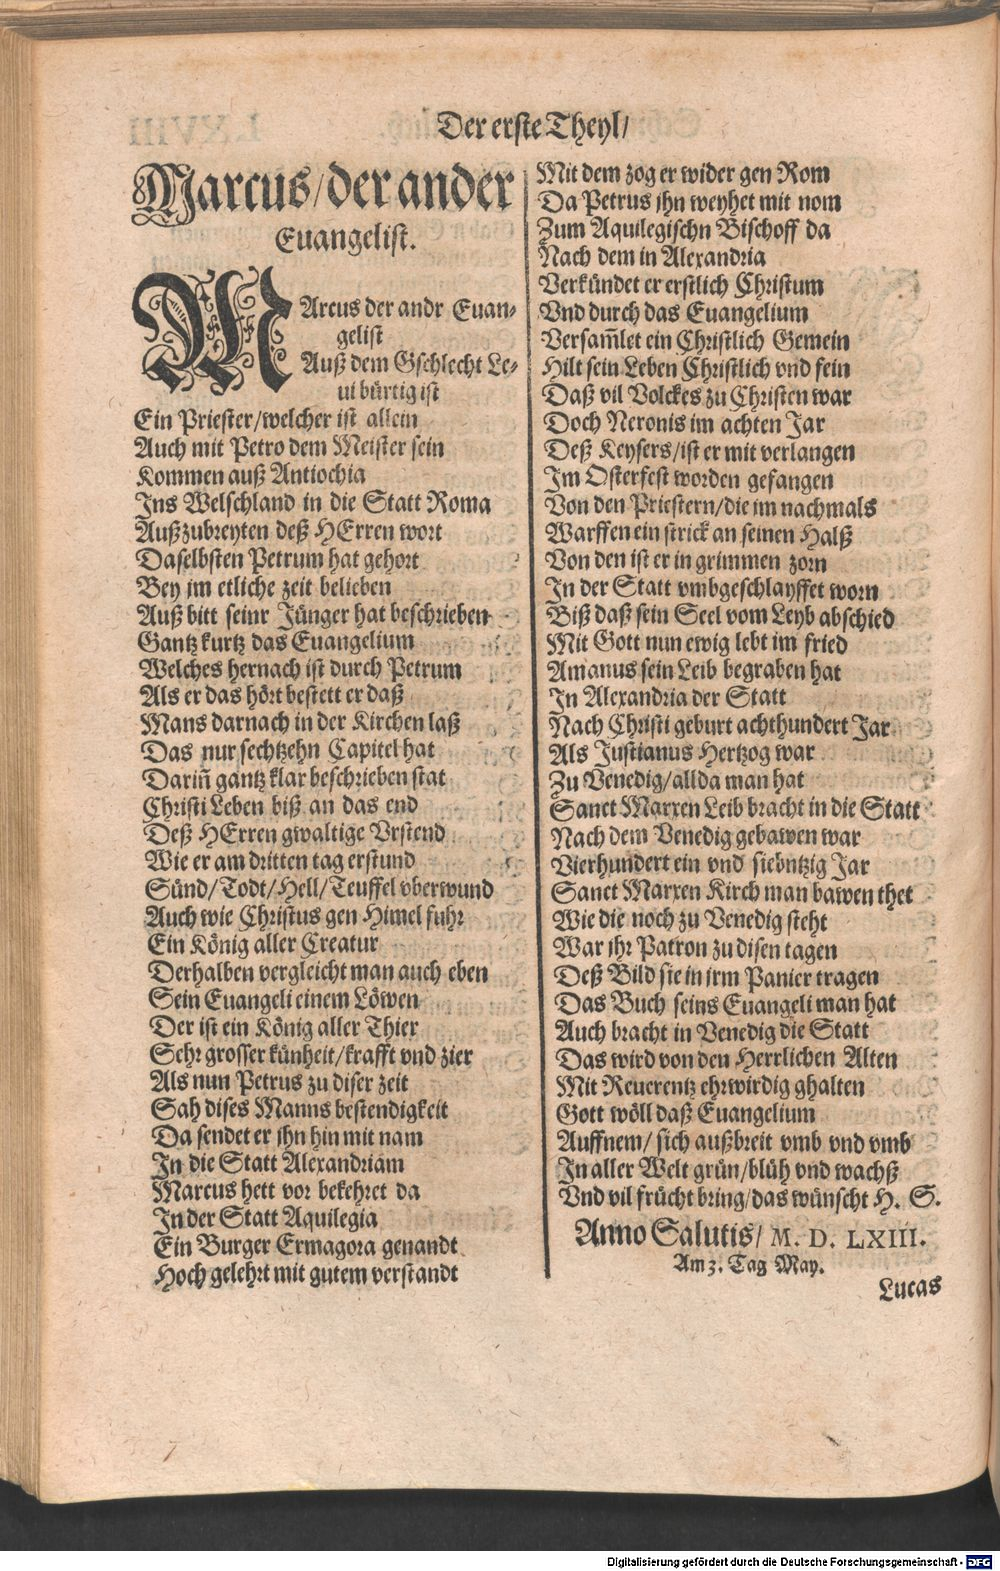 Der erste Theyl/
Marcus/der ander
Euangelist.
MArcus der andr Euan-
gelist
Auß dem Gschlecht Le-
ui bürtig ist
Ein Priester/welcher ist allein
Auch mit Petro dem Meister sein
Kommen auß Antiochia
Ins Welschland in die Statt Roma
Außzubreyten deß HErren wort
Daselbsten Petrum hat gehort
Bey jm etliche zeit belieben
Auß bitt seinr Jünger hat beschrieben
Gantz kurtz das Euangelium
Welches hernach ist durch Petrum
Als er das hört bestett er daß
Mans darnach in der Kirchen laß
Das nur sechtzehn Capitel hat
Dariñ gantz klar beschrieben stat
Christi Leben biß an das end
Deß HErren gwaltige Vrstend
Wie er am dritten tag erstund
Sünd/Todt/Hell/Teuffel vberwund
Auch wie Christus gen Himel fuhr
Ein König aller Creatur
Derhalben vergleicht man auch eben
Sein Euangeli einem Löwen
Der ist ein König aller Thier
Sehr grosser künheit/krafft vnd zier
Als nun Petrus zu diser zeit
Sah dises Manns bestendigkeit
Da sendet er jhn hin mit nam
In die Statt Alexandriam
Marcus hett vor bekehret da
In der Statt Aquilegia
Ein Burger Ermagora genandt
Hoch gelehrt mit gutem verstandt
Mit dem zog er wider gen Rom
Da Petrus jhn weyhet mit nom
Zum Aquilegischn Bischoff da
Nach dem in Alexandria
Verkündet er erstlich Christum
Vnd durch das Euangelium
Versam̃let ein Christlich Gemein
Hilt sein Leben Christlich vnd fein
Daß vil Volckes zu Christen war
Doch Neronis im achten Jar
Deß Keysers/ist er mit verlangen
Im Osterfest worden gefangen
Von den Priestern/die im nachmals
Warffen ein strick an seinen Halß
Von den ist er in grimmen zorn
In der Statt vmbgeschlayffet worn
Biß daß sein Seel vom Leyb abschied
Mit Gott nun ewig lebt im fried
Amanus sein Leib begraben hat
In Alexandria der Statt
Nach Christi geburt achthundert Jar
Als Justianus Hertzog war
Zu Venedig/allda man hat
Sanct Marxen Leib bracht in die Statt
Nach dem Venedig gebawen war
Vierhundert ein vnd siebntzig Jar
Sanct Marxen Kirch man bawen thet
Wie die noch zu Venedig steht
War jhr Patron zu disen tagen
Deß Bild sie in jrm Panier tragen
Das Buch seins Euangeli man hat
Auch bracht in Venedig die Statt
Das wird von den Herrlichen Alten
Mit Reuerentz ehrwirdig ghalten
Gott wöll daß Euangelium
Auffnem/ sich außbreit vmb vnd vmb
In aller Welt grün/blüh vnd wachß
Vnd vil frücht bring/das wünscht H. S.
Anno Salutis/ M. D. LXIII.
Am 3. Tag May.
Lucas
Digitalisierung gefördert durch die Deutsche Forschungsgemeinschaft - DFG